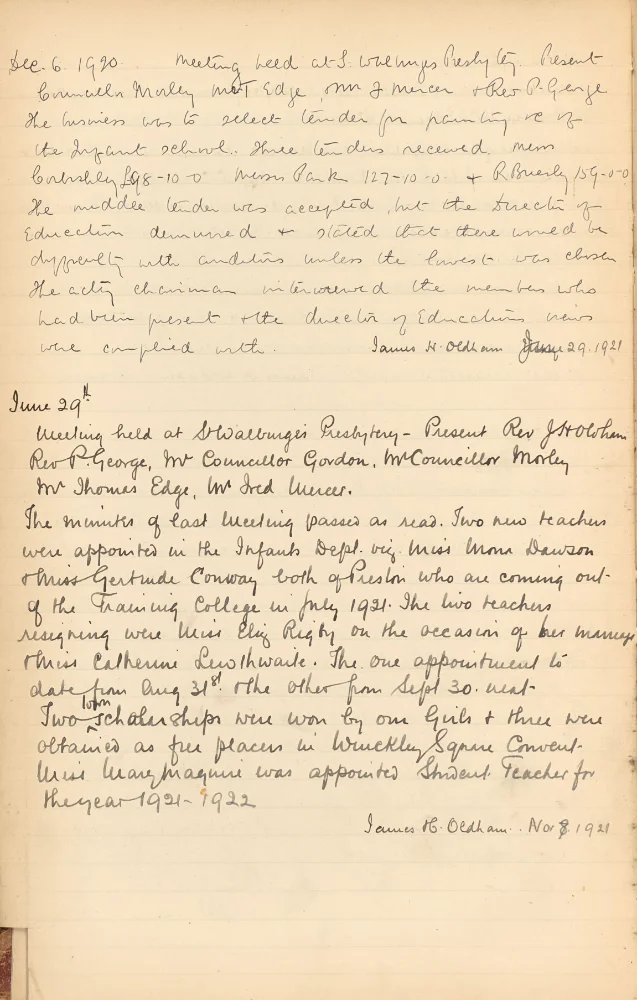 Dec. 6. 1920. Meeting held at S. Walburges Presbytey. Present
Councillor Morley Mr T Edge, Mr J Mercer & Rev P. George
The business was to select tender for painting &c of
the Infant school. Three tenders received. Messrs
£98-10-0 Messrs Park 127-10-0 & R Brierly 159-0-0
The middle tender was accepted, but the Director of
Education demurred & stated that there would be
difficulty with auditors unless the lowest was chosen
The acting chairman interviewed the members who
had been present & the director of Educations views
were complied with. James H. Oldham June 29. 1921
June 29th
Meeting held at St Walburge's Presbytery - Present Rev J H Oldham
Rev P. George, Mr Councillor Gordon, Mr Councillor Morley
Mr Thomas Edge, Mr Fred Mercer.
The minutes of last Meeting passed as read. Two new teachers
were appointed in the Infants Dept. viz. Miss Mona Dawson
& Miss Gertrude Conway both of Preston who are coming out
of the Training College in July 1921. The two teachers
resigning were Miss Eliz Rigby on the occasion of her marriage
& Miss Catherine Lewthwaite. The one appointment to
date from Aug 31st & the other from Sept 30. next.
Two town scholarships were won by our Girls & three were
obtained as free placers in Winckley Square Convent.
Miss Mary Maguire was appointed Student Teacher for
the year 1921-1922
James H. Oldham. Nov 8 1921